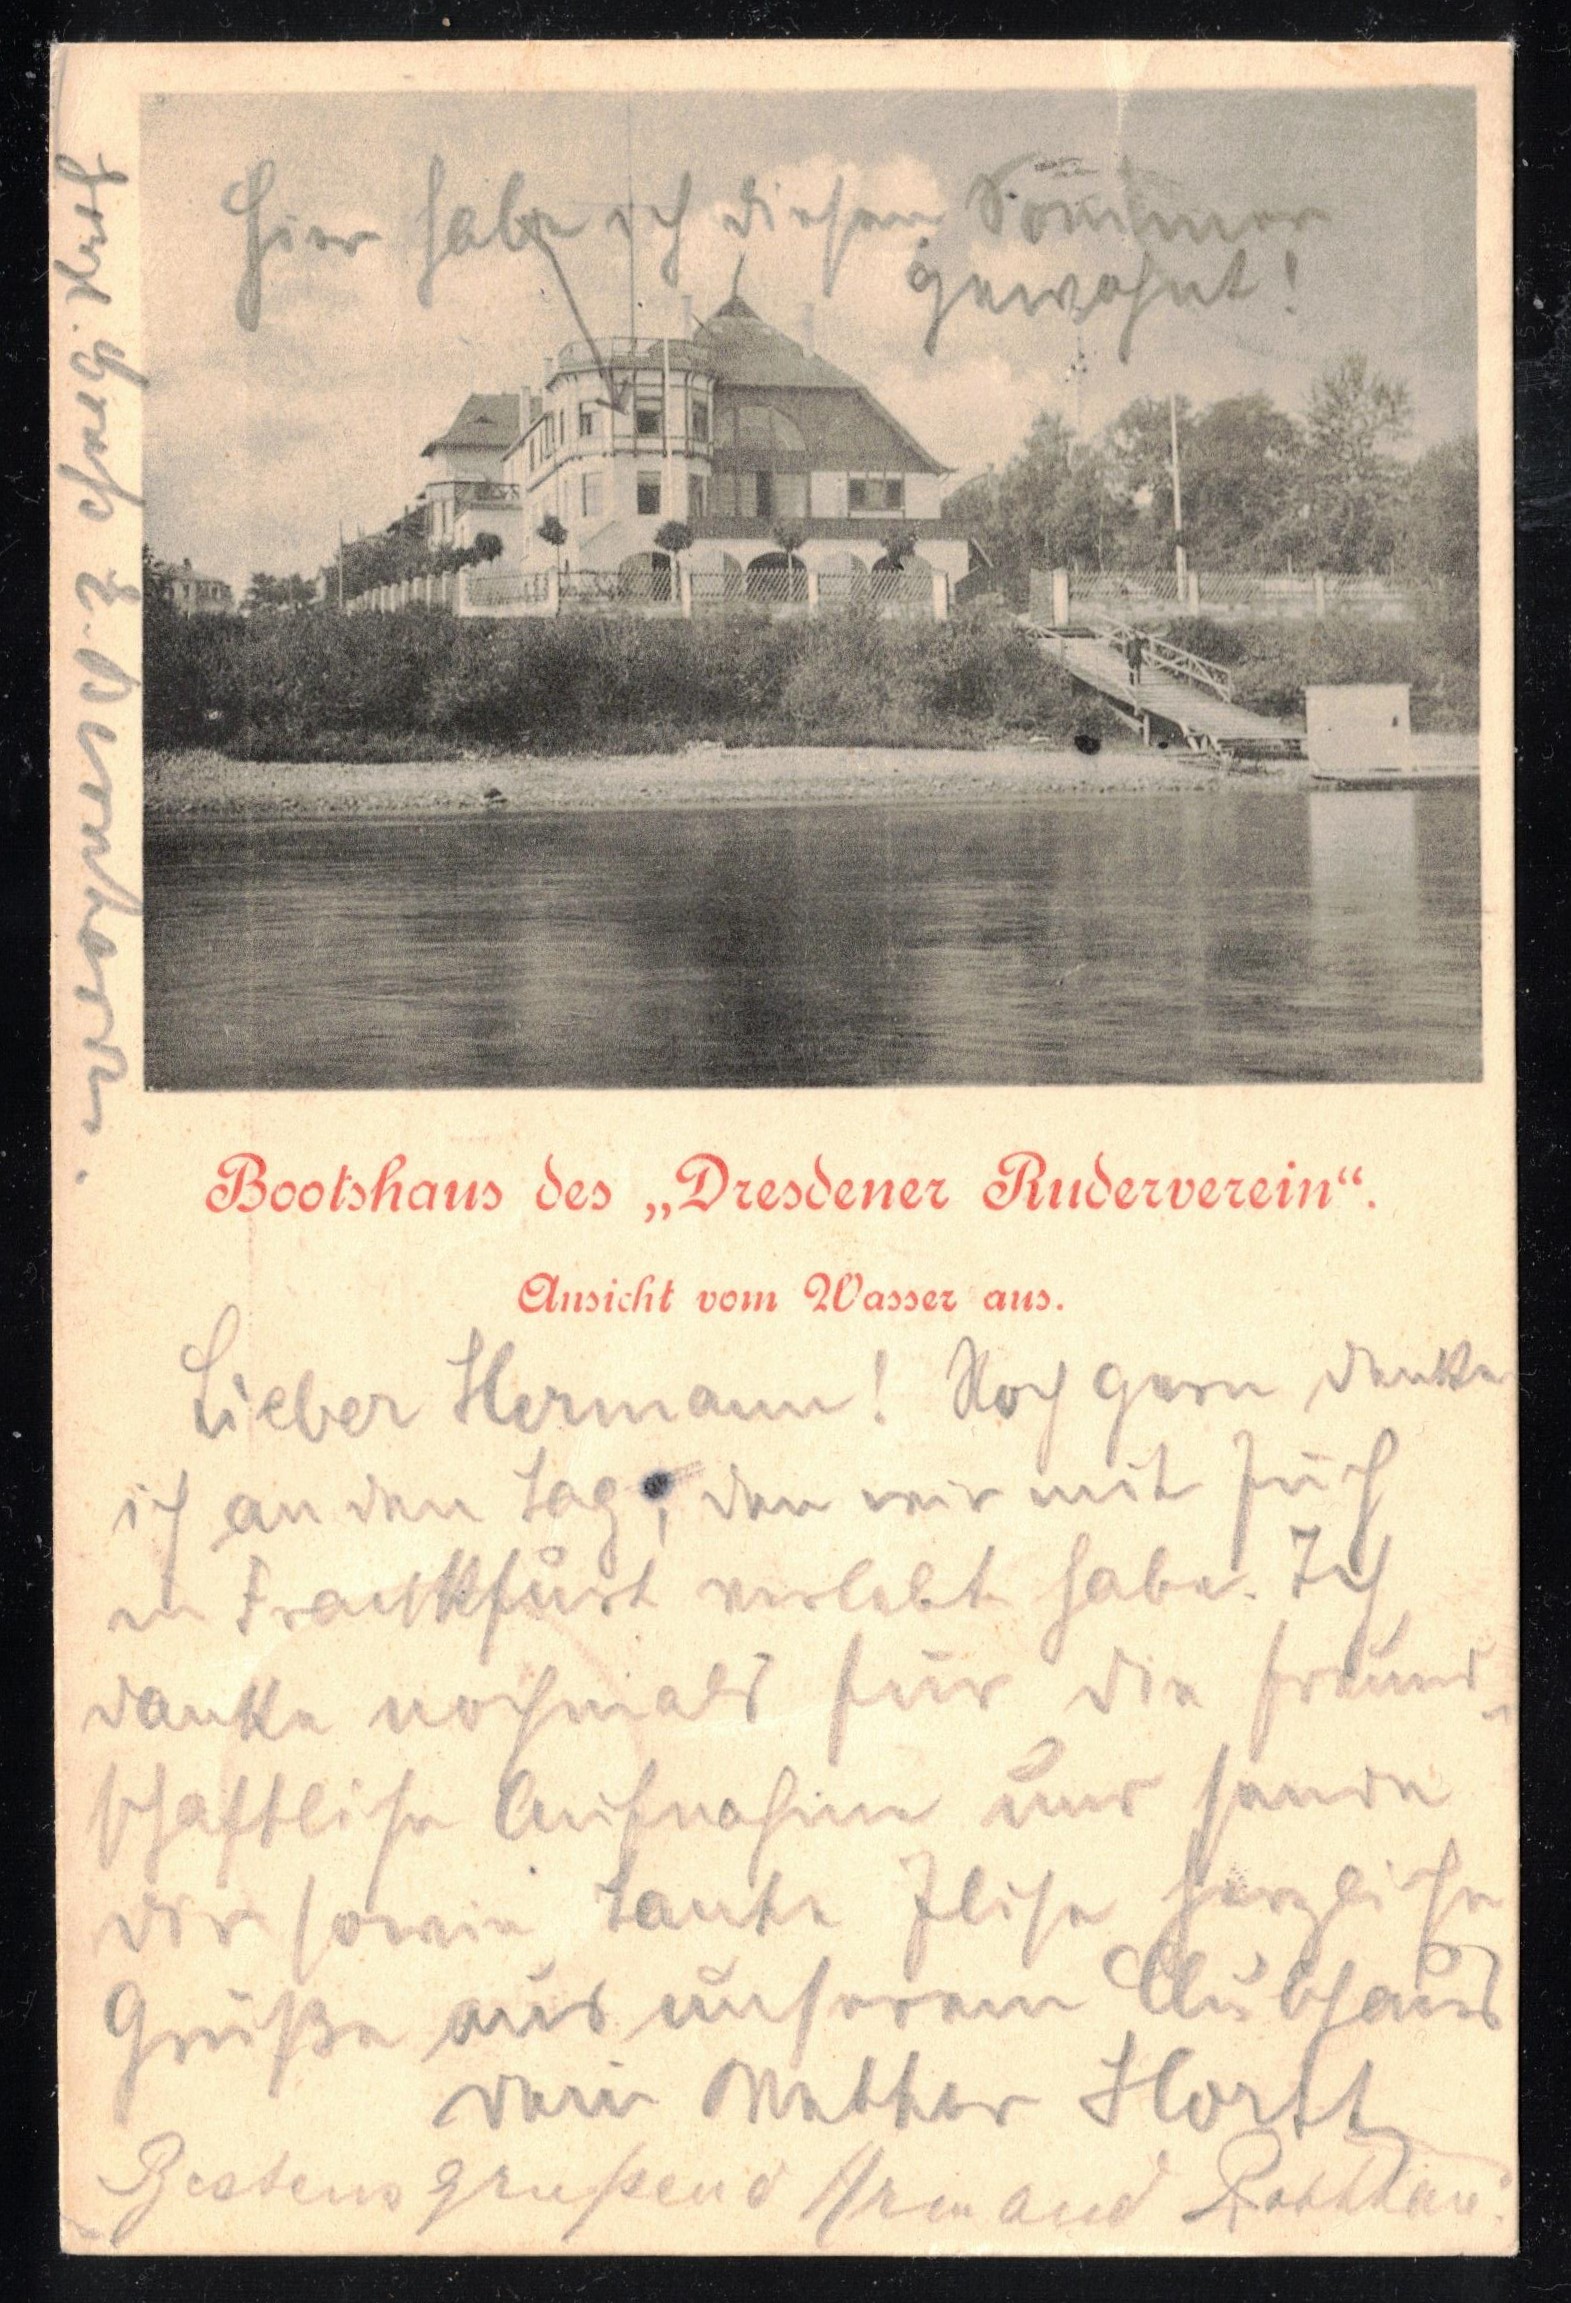 Hier habe ich diesen Sommer
gewohnt!
Bootshaus des „Dresdener Ruderverein“.
Ansicht vom Wasser aus.
Lieber Hermann! Noch gern denke
ich an den Tag, den wir mit Euch
in Frankfurt verlebt habe. Ich
danke nochmals für die freund-
schaftliche Aufnahme und sende
dir sowie Tante Elise herzliche
Grüße aus unserem Clubhaus
dein Vetter Horst
Bestens grüßend Armand
Herzl. Gruß